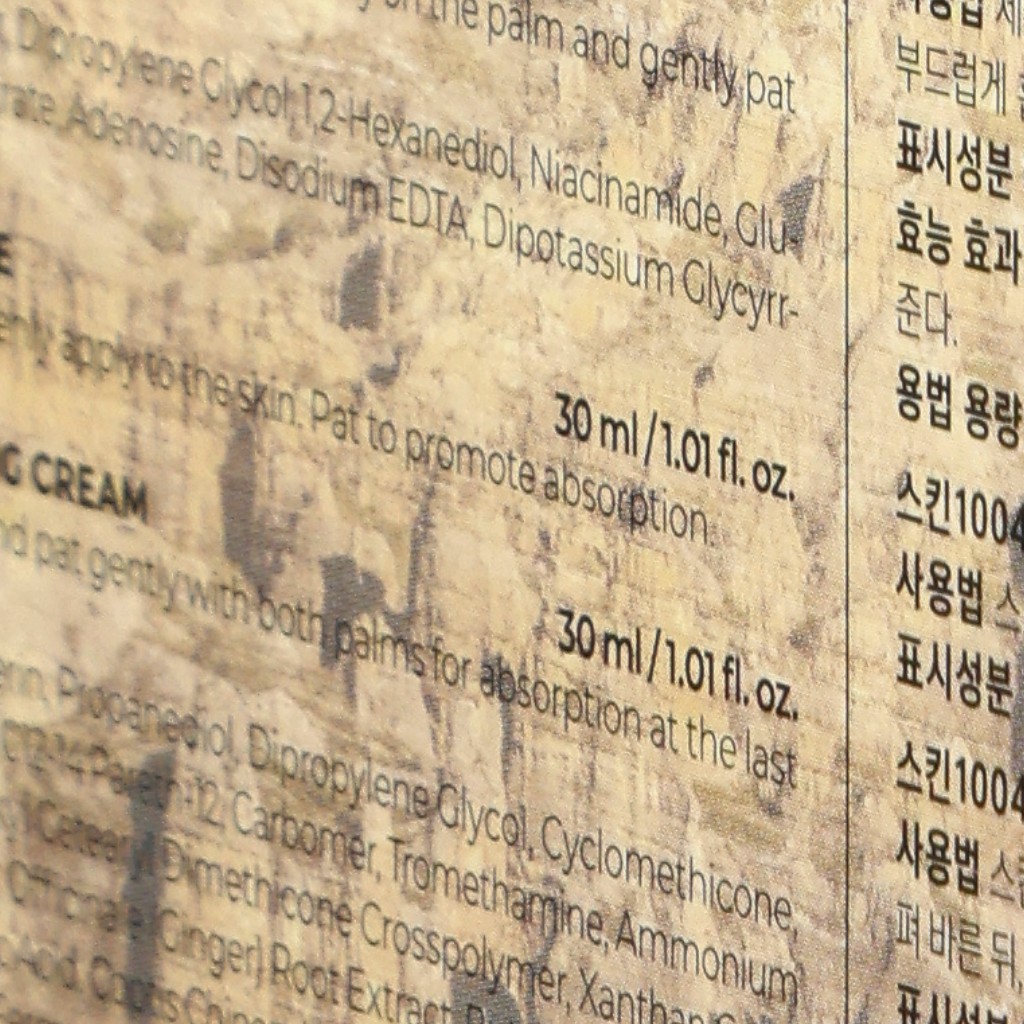 the palm and gently pat
Dipropylene Glycol, 1,2-Hexanediol, Niacinamide, Glu-
Adenosine, Disodium EDTA, Dipotassium Glycyrr-
30 ml / 1.01 fl. oz.
apply to the skin. Pat to promote absorption.
G CREAM
30 ml / 1.01 fl. oz.
pat gently with both palms for absorption at the last
Propanediol, Dipropylene Glycol, Cyclomethicone,
C12-14 Pareth-12, Carbomer, Tromethamine, Ammonium
Dimethicone Crosspolymer, Xanthan
Officinale (Ginger) Root Extract,
Acid, Coptis
부드럽게
표시성분
효능 효과
준다.
용법 용량
스킨1004
사용법 스
표시성분
스킨1004
사용법
펴 바른 뒤,
표시성분